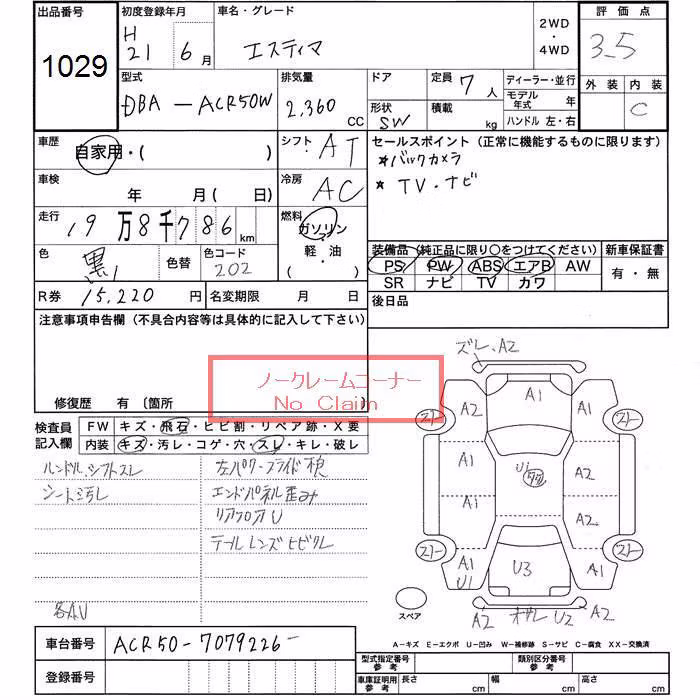 出品番号 初度登録年月 車名・グレード 2WD ・ 4WD 評価点
1029 H 21 6月 エスティマ 3.5
外装 内装
C
型式 排気量 ドア 定員 7人 ディーラー・並行
DBA-ACR50W 2,360 CC 形状 SW 積載 kg モデル年式 年
ハンドル 左・右
車歴 自家用・( ) シフト AT セールスポイント (正常に機能するものに限ります)
*バックカメラ
*TV・ナビ
車検 年 月( 日) 冷房 AC
走行 19万8千786km 燃料 ガソリン・軽・油
色 黒 色替 色コード 202
装備品 (純正品に限り○をつけてください) 新車保証書
PS PW ABS エアB AW 有・無
SR ナビ TV カワ
R券 15,220円 名変期限 月 日 後日品
注意事項申告欄 (不具合内容等は具体的に記入して下さい)
ノークレームコーナー
No Claim
修復歴 有 〔箇所 〕
検査員記入欄 FW キズ・飛石・ヒビ割・リペア跡・X要
内装 キズ・汚レ・コゲ・穴・スレ・キレ・破レ
ハンドル、シフトスレ
シート汚レ
左パワースライド検
エンドパネル歪み
リアフロアU
テールレンズヒビワレ
各AU
ズレ、A2
A2 A1 A1
A1 A2
A1 A2
A1 U1 U3 A1
A2 U2 A2
スペア
A-キズ E-エクボ U-凹み W-補修跡 S-サビ C-腐食 XX-交換済
車台番号 ACR50-7079226
登録番号
型式指定番号 参考 類別区分番号 参考
車庫証明用 参考 長さ cm 幅 cm 高さ cm